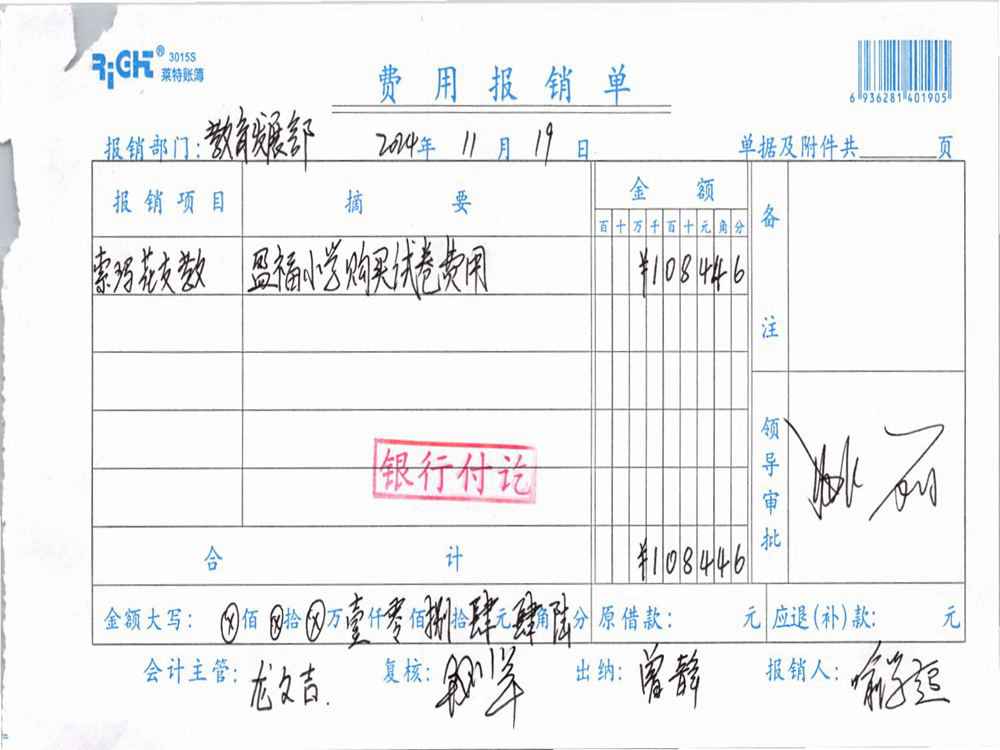 RiGHT® 3015S
莱特账簿
费用报销单
6 936281 401905
报销部门：教育发展部 2014年 11月 19日 单据及附件共 页
报销项目 摘要 金额 备注
百十万千百十元角分
索玛花支教 盈福小学购买试卷费用 ¥108446
银行付讫
领导审批
合计 ¥108446
金额大写：ⓧ佰ⓧ拾ⓧ万壹仟零佰捌拾肆元肆角陆分 原借款： 元 应退(补)款： 元
会计主管：龙文吉. 复核： 出纳：曾静 报销人：